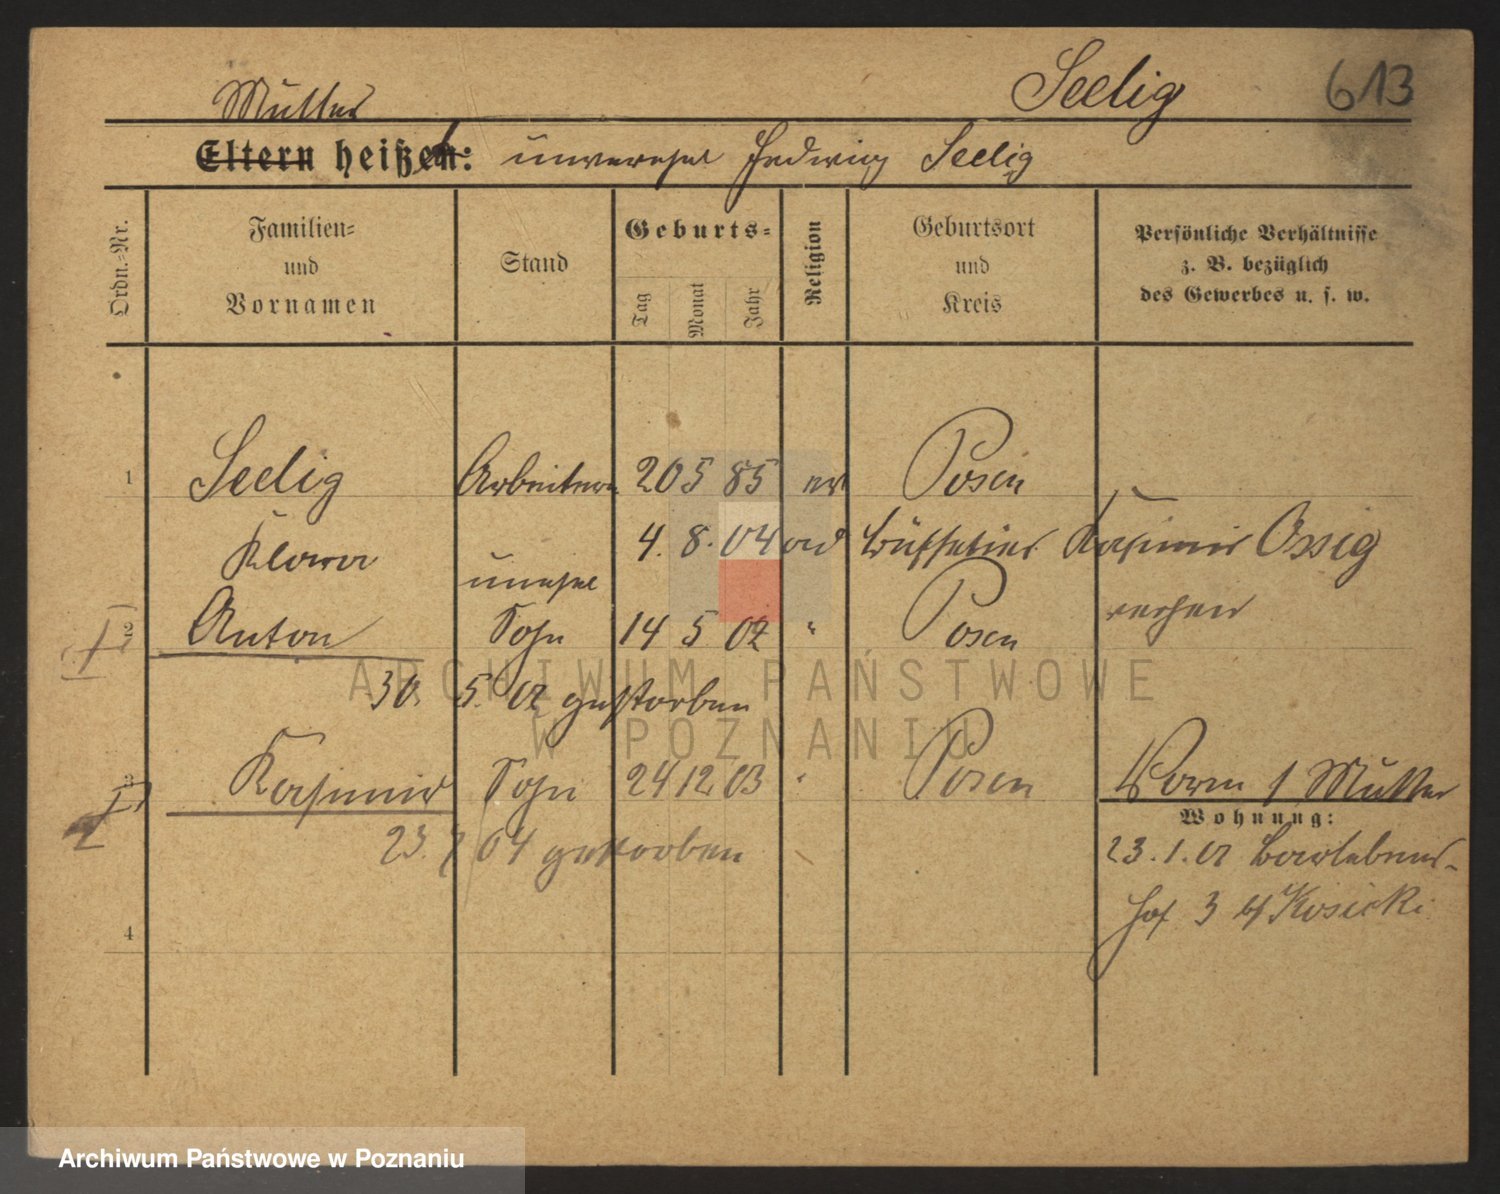 Seelig 613
Mutter
Eltern heißen: unverehel Hedwig Seelig
Ordn.-Nr.
Familien-
und
Vornamen
Stand
Geburts-
Tag
Monat
Jahr
Religion
Geburtsort
und
Kreis
Persönliche Verhältnisse
z. B. bezüglich
des Gewerbes u. s. w.
1 Seelig Arbeiterin 20 5 85 Posen
Klara unehel 4. 8. 04 Büffetier Kasimir Ossig
2 Anton Sohn 14 5 02 " Posen
30. 5. 02 gestorben
3 Kasimir Sohn 24 12 03 Posen Mutter
Wohnung:
23. 7 04 gestorben 23.1.02
Hof 3 Kosicki
4
ARCHIWUM PAŃSTWOWE
W POZNANIU
Archiwum Państwowe w Poznaniu